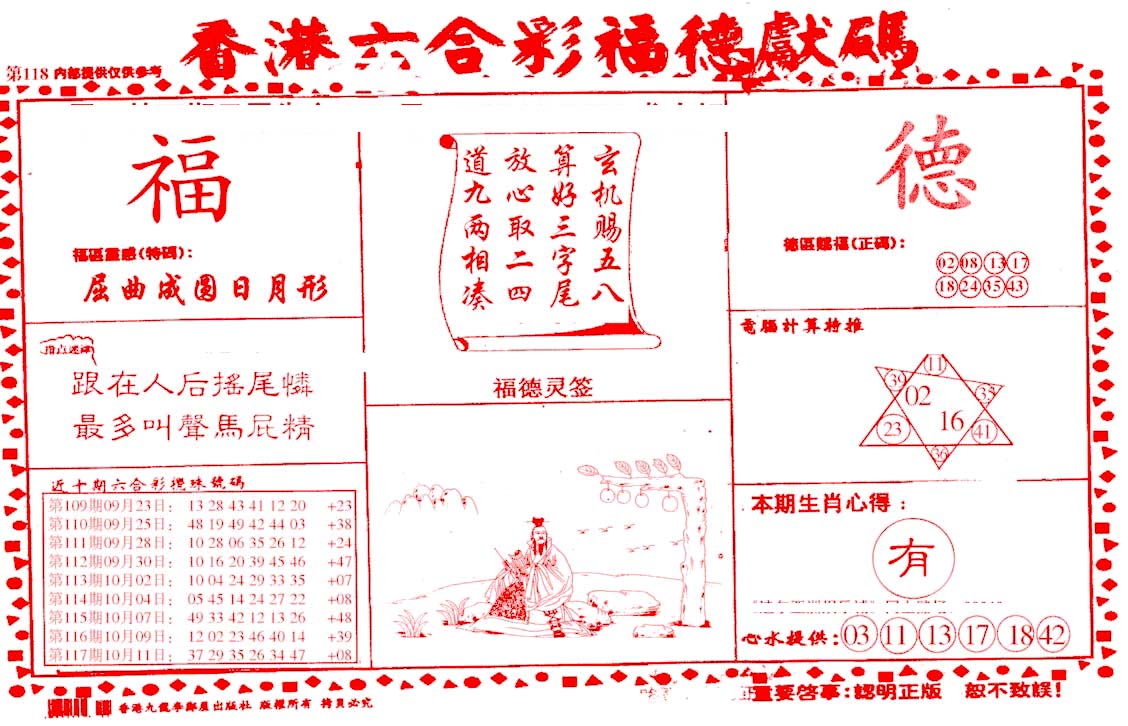 香港六合彩福德獻碼
第118 内部提供仅供参考
福
福區靈感(特碼):
屈曲成圓日月形
指点迷津
跟在人后搖尾憐
最多叫聲馬屁精
近十期六合彩攪珠號碼
第109期09月23日: 13 28 43 41 12 20 +23
第110期09月25日: 48 19 49 42 44 03 +38
第111期09月28日: 10 28 06 35 26 12 +24
第112期09月30日: 10 16 20 39 45 46 +47
第113期10月02日: 10 04 24 29 33 35 +07
第114期10月04日: 05 45 14 24 27 22 +08
第115期10月07日: 49 33 42 12 13 26 +48
第116期10月09日: 12 02 23 46 40 14 +39
第117期10月11日: 37 29 35 26 34 47 +08
玄机赐五八
算好三字尾
放心取二四
道九两相凑
福德灵签
德
德區賜福(正碼):
02 08 13 17
18 24 35 43
電腦計算特推
11
39
02
33
16
23
41
36
本期生肖心得:
有
心水提供: 03 11 13 17 18 42
重要啓事:認明正版 恕不致誤!
香港九龍李鄭屋出版社 版權所有 拷貝必究